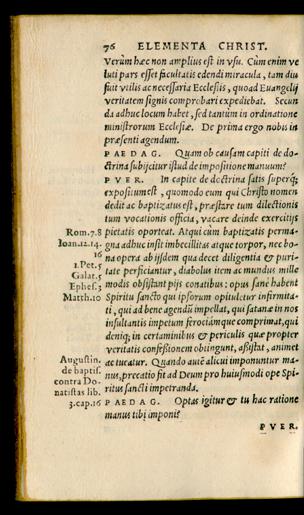 76 ELEMENTA CHRIST.
Verùm hæc non amplius est in vsu. Cùm enim ve
luti pars esset facultatis edendi miracula, tam diu
fuit vtilis ac necessaria Ecclesiis, quoad Euangelij
veritatem signis comprobari expediebat. Secun
da adhuc locum habet, sed tantùm in ordinatione
ministrorum Ecclesiæ. De prima ergo nobis in
præsenti agendum.
PAEDAG. Quam ob causam capiti de do-
ctrina subijcitur istud de impositione manuum?
PVER. In capite de doctrina satis superq́;
expositum est, quomodo eum qui Christo nomen
dedit ac baptizatus est, præstare tum dilectionis
tum vocationis officia, vacare deinde exercitijs
pietatis oporteat. Atqui cùm baptizatis perma-
gna adhuc insit imbecillitas atque torpor, nec bo-
na opera ab ijsdem qua decet diligentia & puri-
tate perficiantur, diabolus item ac mundus mille
modis obsistant pijs conatibus: opus sanè habent
Spiritu sancto qui ipsorum opituletur infirmita-
ti, qui ad bene agendũ impellat, qui satanæ in nos
insultantis impetum ferociámque comprimat, qui
deniq; in certaminibus & periculis quæ propter
veritatis confessionem obeunt, assistat, animet
ac tueatur. Quando autẽ alicui imponuntur ma-
nus, precatio fit ad Deum pro huiusmodi ope Spi-
ritus sancti impetranda.
PAEDAG. Optas igitur & tu hac ratione
manus tibi imponi?
PVER.
Rom.7.8
Ioan.12.14.
16
1.Pet.5
Galat.5
Ephes.5
Matth.10
Augustin.
de baptis.
contra Do-
natistas lib.
3.cap.16